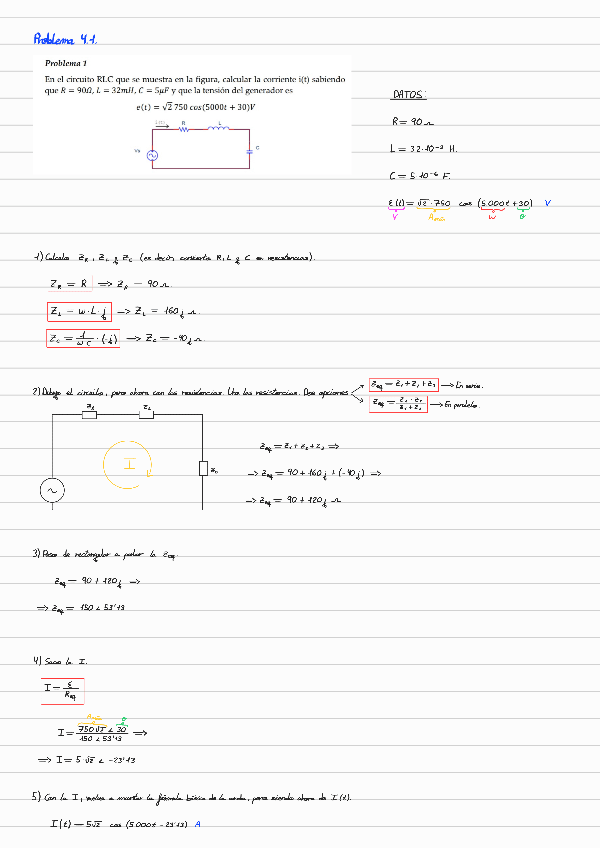 Problema 4.1.
Problema 1
En el circuito RLC que se muestra en la figura, calcular la corriente i(t) sabiendo
que R = 90Ω, L = 32mH, C = 5μF y que la tensión del generador es
e(t) = √2 750 cos(5000t + 30)V
R L
C
DATOS:
R = 90 Ω
L = 32·10⁻³ H.
C = 5·10⁻⁶ F.
ε(t) = √2·750 cos (5.000t + 30) V
V Amax W θ
1) Calculo ZR, ZL y ZC (es decir, convierto R, L y C en resistencias).
ZR = R ⟹ ZR = 90 Ω
ZL = w·L·j ⟹ ZL = 160j Ω
ZC = 1/wC · (-j) ⟹ ZC = -40j Ω
2) Dibujo el circuito, pero ahora con las resistencias. Uno las resistencias. Dos opciones
Zeq = Z1 + Z2 + Z3 → En serie.
Zeq = Z1 · Z2 / Z1 + Z2 → En paralelo.
ZR ZL
ZC
I
Zeq = Z1 + Z2 + Z3 ⟹
⟹ Zeq = 90 + 160j + (-40j) ⟹
⟹ Zeq = 90 + 120j Ω
3) Paso de rectangular a polar la Zeq.
Zeq = 90 + 120j ⟹
⟹ Zeq = 150 ∠ 53'13
4) Saco la I.
I = ε / Req
Amax θ
I = 750√2 ∠ 30 / 150 ∠ 53'13 ⟹
⟹ I = 5 √2 ∠ -23'13
5) Con la I, vuelvo a montar la fórmula básica de la onda, pero siendo ahora de I(t).
I(t) = 5√2 cos (5.000t - 23'13) A